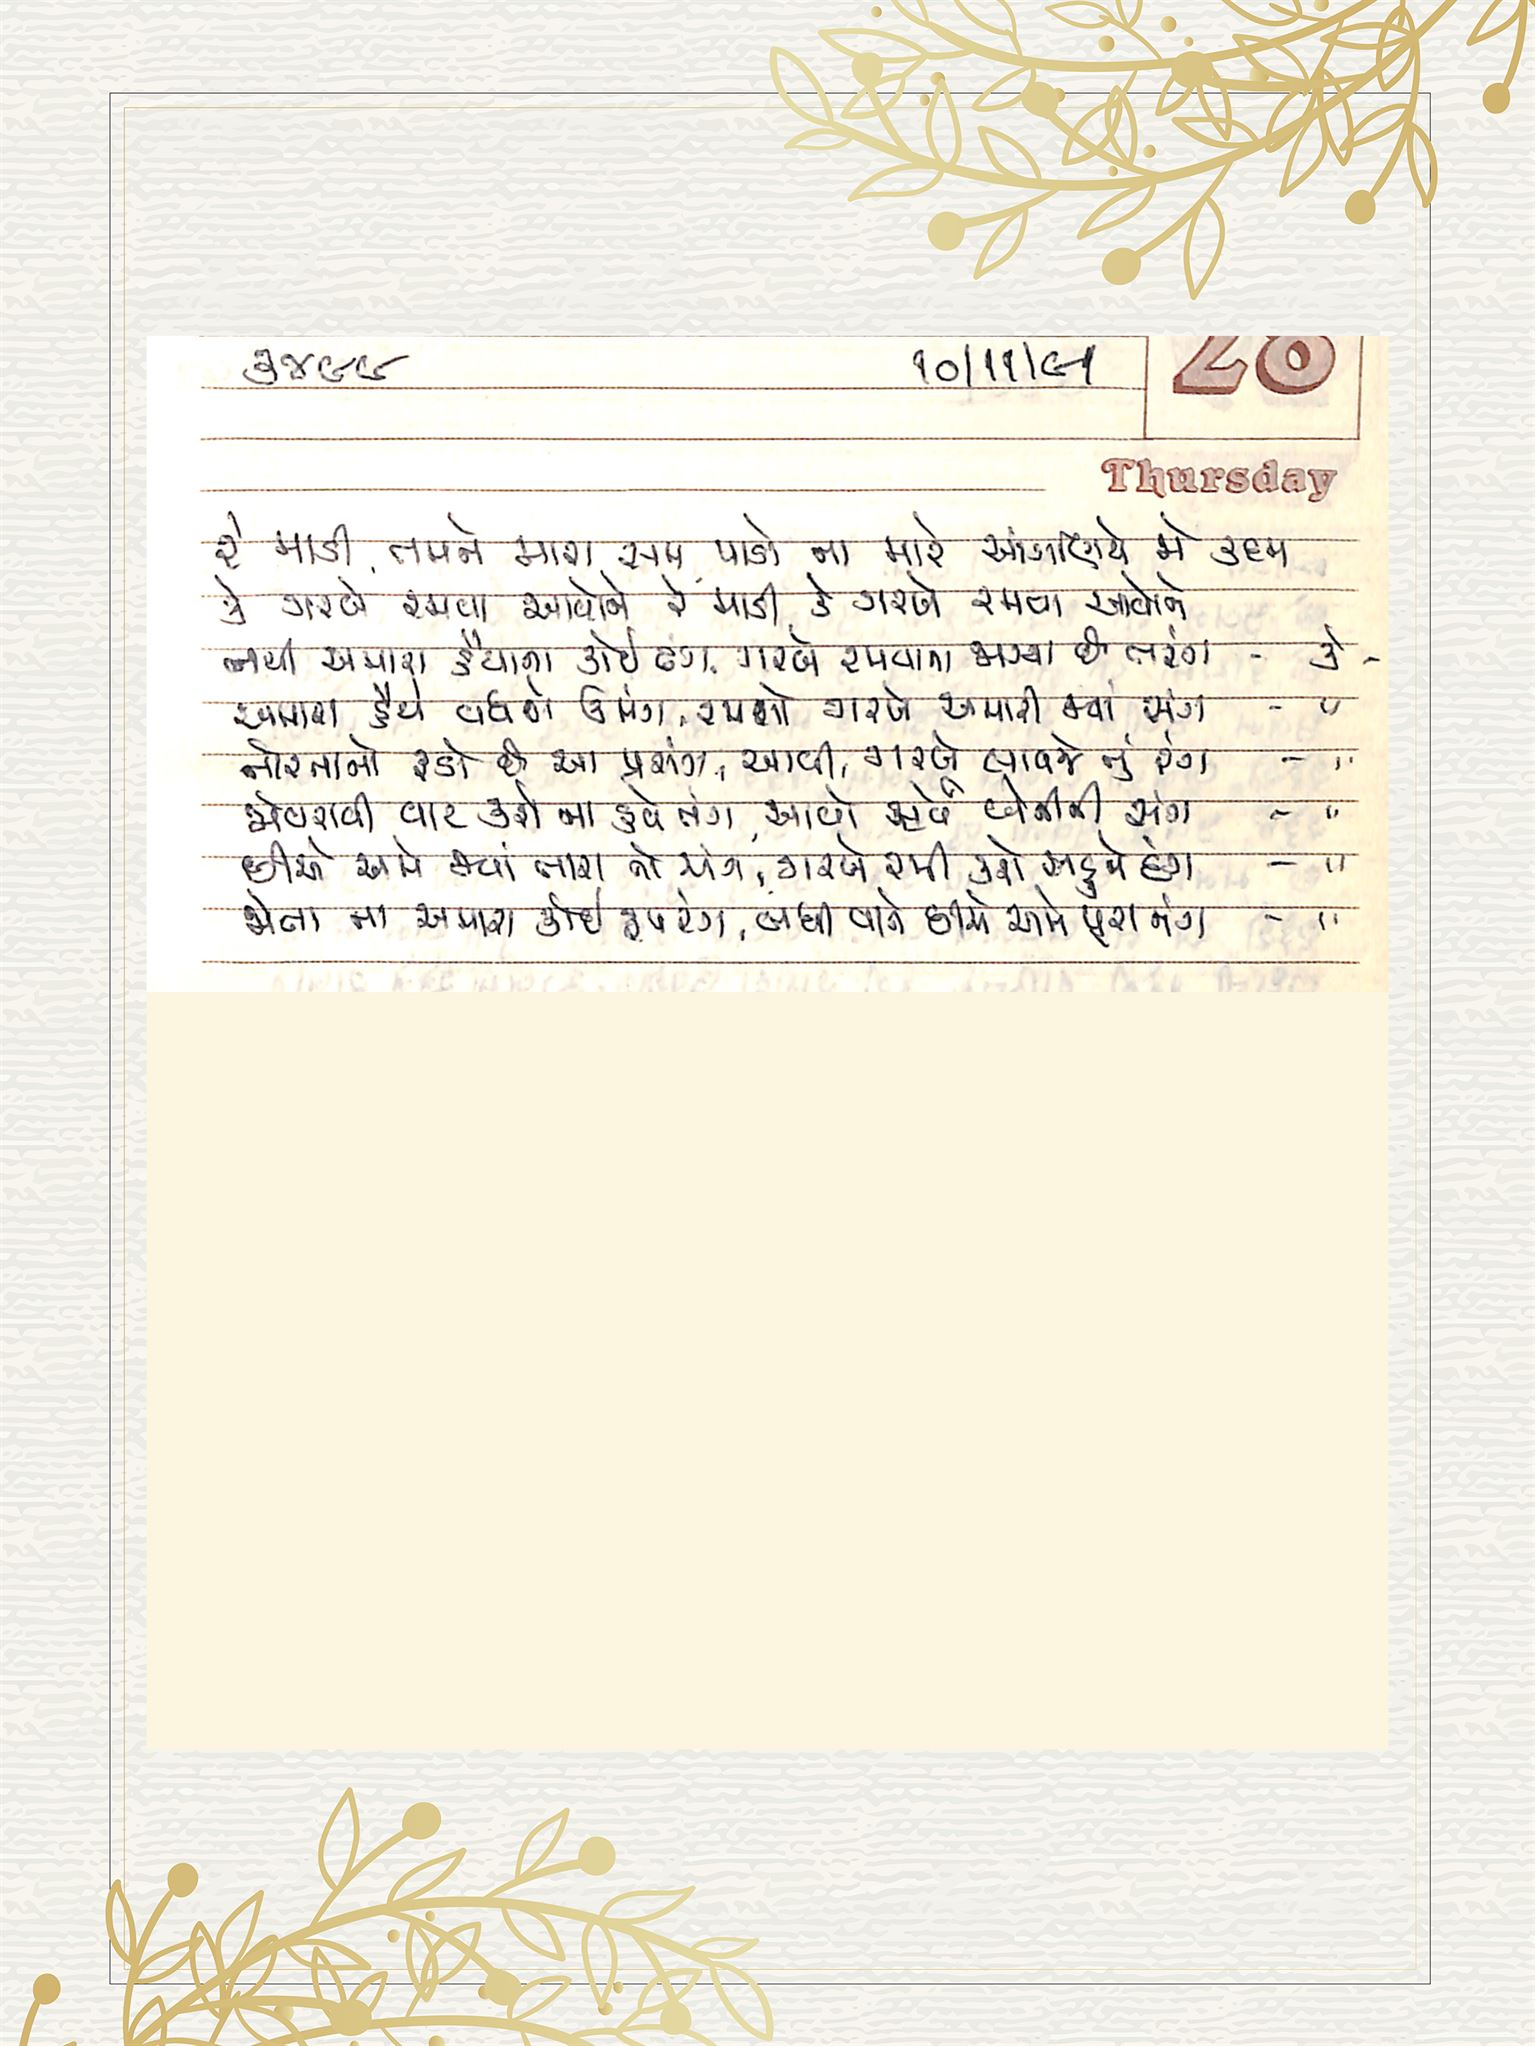 ૩૪૯૯ ૧૦/૧૧/૯૧ 28
Thursday
રે માડી, તમને મારા સમ, પાડો ના મારે આંગણિયે એ કદમ
કે ગરબે રમવા આવોને રે માડી, કે ગરબે રમવા આવોને
નથી અમારા હૈયાના કોઈ ઢંગ, ગરબે રમવાના જાગ્યા છે તરંગ - કે -
અમારા હૈયે વધને ઉમંગ, રમશો ગરબે અમારી જ્યાં સંગ - "
નોરતાનો રૂડો છે આ પ્રસંગ, આવી, ગરબે લાવજે તું રંગ - "
એવરાવી વાર કરો ના હવે તંગ, આવો સર્વે બેનીની સંગ - "
છીએ અમે જ્યાં તારા તો અંગ, ગરબે રમી કરો સહુને દંગ - "
જોતા ના અમારા કોઈ રૂપ રંગ, બધી વાતે છીએ અમે પૂરા નંગ - "